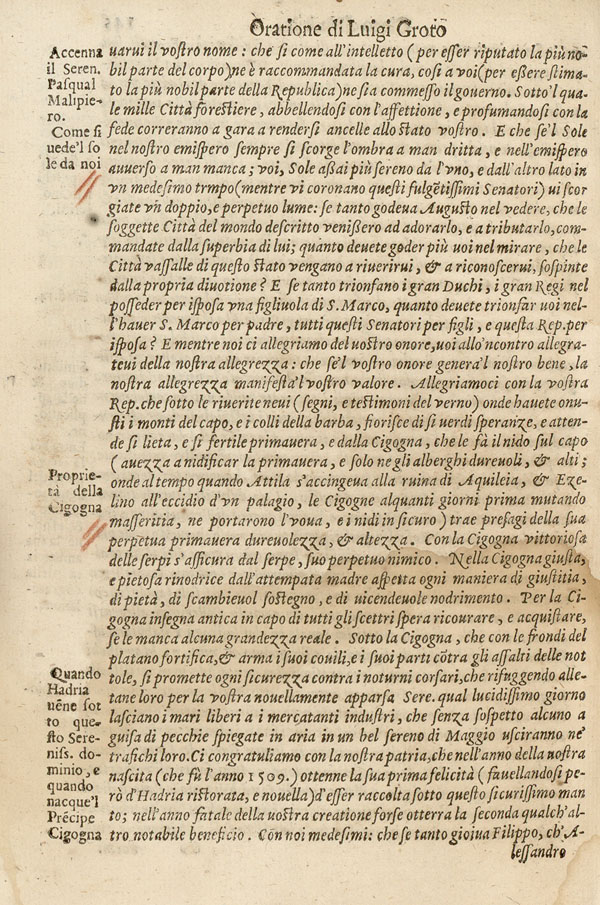 Oratione di Luigi Groto
Accenna
il Seren.
Pasqual
Malipie-
ro.
Come si
uede'l so
le da noi
uarui il vostro nome: che si come all'intelletto (per esser riputato la più no-
bil parte del corpo) ne è raccommandata la cura, cosi a voi (per eßere stima-
to la più nobil parte della Republica) ne sia commesso il gouerno. Sotto'l qua
le mille Città forestiere, abbellendosi con l'affettione, e profumandosi con la
fede correranno a gara a rendersi ancelle allo stato vostro. E che se'l Sole
nel nostro emispero sempre si scorge l'ombra a man dritta, e nell'emispero
auuerso a man manca; voi, Sole aßai più sereno da l'vno, e dall'altro lato in
vn medesimo trmpo (mentre vi coronano questi fulgētissimi Senatori) ui scor
giate vn doppio, e perpetuo lume: se tanto godeua Augusto nel vedere, che le
soggette Città del mondo descritto venißero ad adorarlo, e a tributarlo, com-
mandate dalla superbia di lui; quanto deuete goder più uoi nel mirare, che le
Città vassalle di questo stato vengano a riuerirui, & a riconoscerui, sospinte
dalla propria diuotione? E se tanto trionfano i gran Duchi, i gran Regi nel
posseder per isposa vna figliuola di S. Marco, quanto deuete trionfar uoi nel-
l'hauer S. Marco per padre, tutti questi Senatori per figli, e questa Rep. per
isposa? E mentre noi ci allegriamo del uostro onore, uoi allo'ncontro allegra-
teui della nostra allegrezza: che se'l vostro onore genera'l nostro bene, la
nostra allegrezza manifesta'l vostro valore. Allegriamoci con la vostra
Rep. che sotto le riuerite neui (segni, e testimoni del verno) onde hauete onu-
sti i monti del capo, e i colli della barba, fiorisce di si verdi speranze, e atten-
de si lieta, e si fertile primauera, e dalla Cigogna, che le fà il nido sul capo
(auezza a nidificar la primauera, e solo ne gli alberghi dureuoli, & alti;
onde al tempo quando Attila s'accingeua alla ruina di Aquileia, & Eze-
lino all'eccidio d'vn palagio, le Cigogne alquanti giorni prima mutando
masseritia, ne portarono l'voua, e i nidi in sicuro) trae presagi della sua
perpetua primauera dureuolezza, & altezza. Con la Cigogna vittoriosa
delle serpi s'assicura dal serpe, suo perpetuo nimico. Nella Cigogna giusta,
e pietosa rinodrice dall'attempata madre aspetta ogni maniera di giustitia,
di pietà, di scambieuol sostegno, e di uicendeuole nodrimento. Per la Ci-
gogna insegna antica in capo di tutti gli scettri spera ricourare, e acquistare,
se le manca alcuna grandezza reale. Sotto la Cigogna, che con le frondi del
platano fortifica, & arma i suoi couili, e i suoi parti cōtra gli assalti delle not
tole, si promette ogni sicurezza contra i noturni corsari, che rifuggendo alle-
tane loro per la vostra nouellamente apparsa Sere. qual lucidissimo giorno
lasciano i mari liberi a i mercatanti industri, che senza sospetto alcuno a
guisa di pecchie spiegate in aria in un bel sereno di Maggio usciranno ne'
trafichi loro. Ci congratuliamo con la nostra patria, che nell'anno della nostra
nascita (che fù l'anno 1509.) ottenne la sua prima felicità (fauellandosi pe-
rò d'Hadria ristorata, e nouella) d'esser raccolta sotto questo sicurissimo man
to; nell'anno fatale della uostra creatione forse otterra la seconda qualch'al-
tro notabile beneficio. Con noi medesimi: che se tanto gioiua Filippo, ch'A-
lessandro
Proprie-
tà della
Cigogna
Quando
Hadria
uēne sot
to que-
sto Sere-
niss. do-
minio, e
quando
nacque'l
Prēcipe
Cigogna